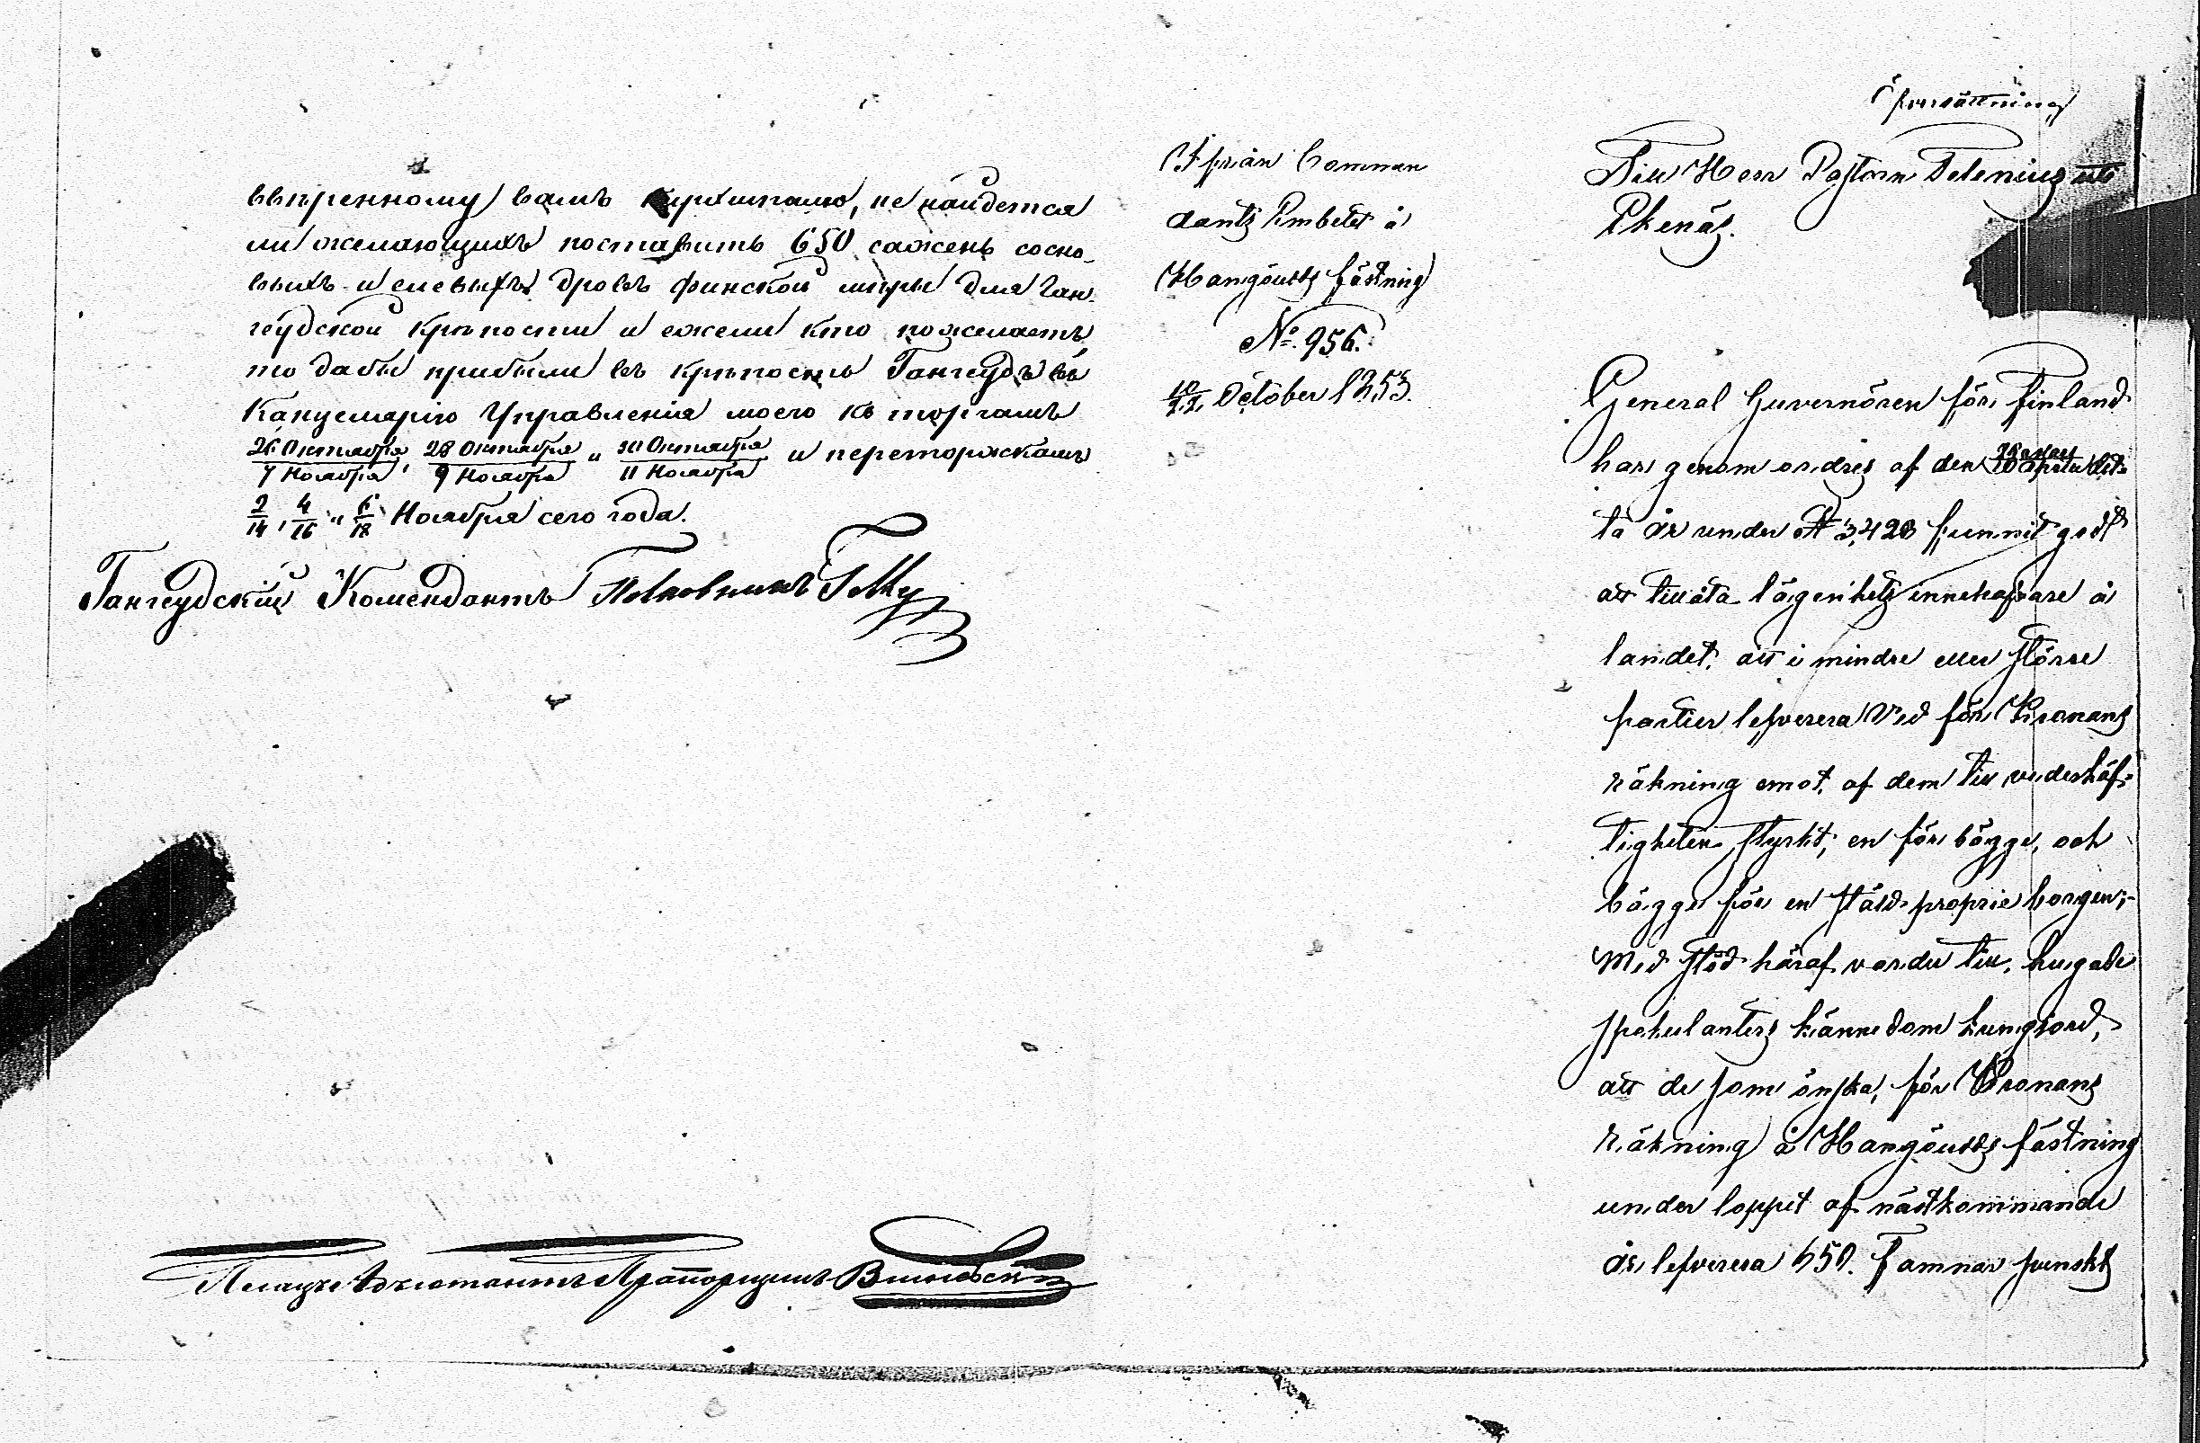 ввѣренному вамъ кирхшпилю, не найдется
ли желающихъ поставить 650 сажень сосно-
выхъ и елевыхъ дровъ финской мѣры для Ган-
геудской крѣпости и ежели кто пожелаетъ
то дабы прибыли въ крѣпость Гангеудъ въ
Канцелярію Управленія моего къ торгамъ
26 Октября / 7 Ноября, 28 Октября / 9 Ноября и 30 Октября / 11 Ноября и переторжкамъ
2/14, 4/16 и 6/18 Ноября сего года.
Гангеудскій Комендантъ Полковникъ
Плацъ Адъютантъ Прапорщикъ
Ifrån Comman
dants Embetet å
Hangöudds fästning
No. 956.
10/22 October 1853.
Öfversättning
Till Herr Pastorn Telenius uti
Ekenäs.
General Guvernören för Finland
har genom ordres af den det-
ta år under No 3,428 funnit godt
att tillåta lägenhets innehafvare å
landet, att i mindre eller större
partier lefverera Ved för Kronans
räkning emot, af dem till vederhäf-
tigheten styrkt, en för bägge, och
bägge för en ställd proprie borgen;-
Med stöd häraf varder till hugade
spekulanters kännedom kungjord,
att de som önska, för Kronans
räkning å Hangöudds fästning
under loppet af nästkommande
år, lefverera 650. Famnar finskt